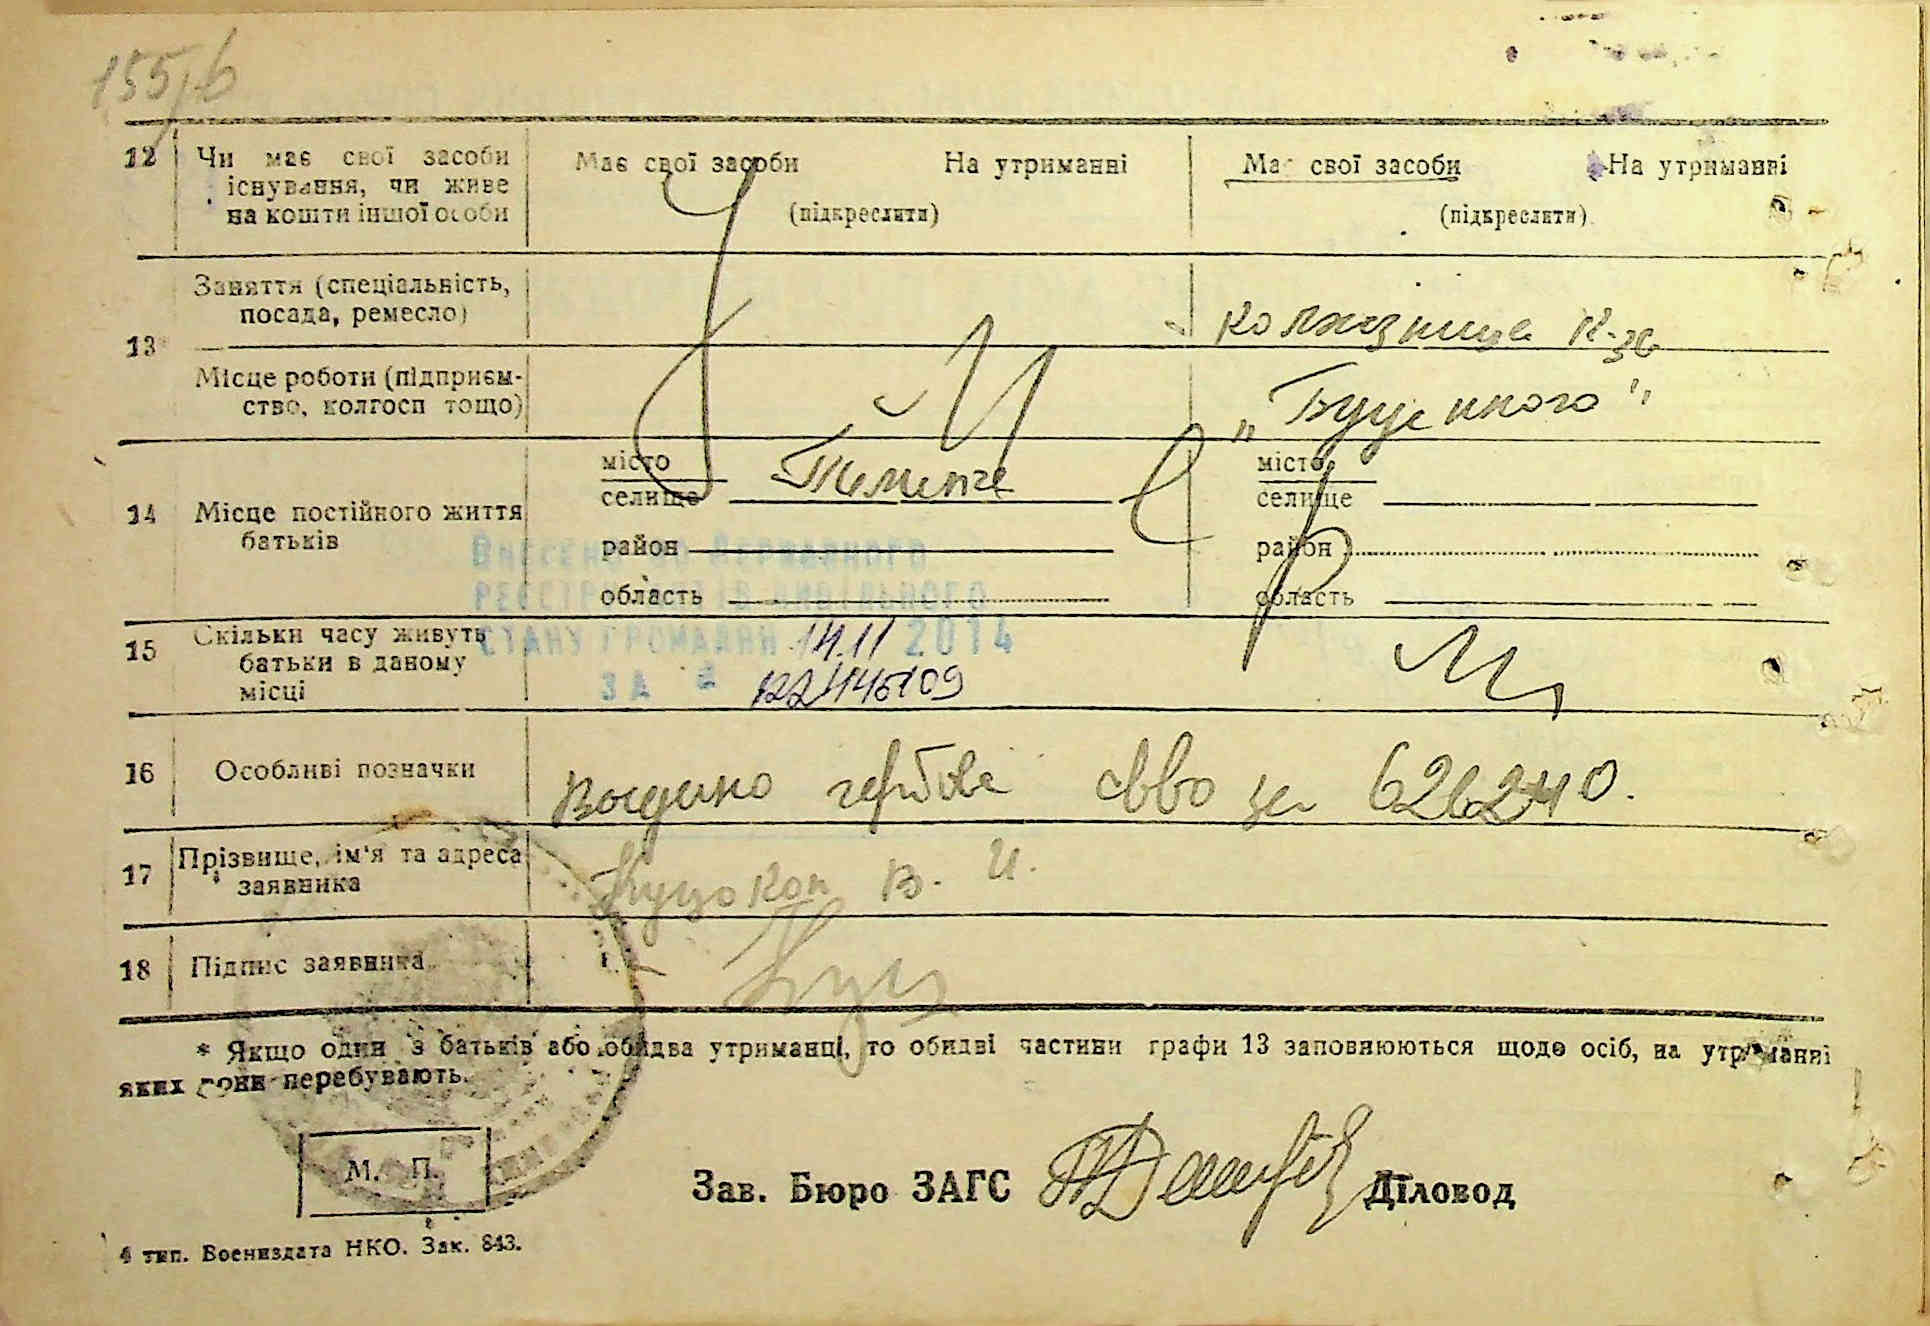 155/6
12 Чи має свої засоби існування, чи живе на кошти іншої особи
Має свої засоби На утриманні
(підкреслити)
Має свої засоби На утриманні
(підкреслити)
13 Заняття (спеціальність, посада, ремесло)
колхозница к-зе
Місце роботи (підприємство, колгосп тощо)
„Буденного"
14 Місце постійного життя батьків
місто
селище
район
область
місто
селище
район
область
Внесено до Державного
реєстру актів цивільного
стану громадян 14.11 2014
за №
15 Скільки часу живуть батьки в даному місці
16 Особливі позначки
Видано гербове св-во за 626240.
17 Прізвище, ім'я та адреса заявника
Куцокон В. И.
18 Підпис заявника
Куц
* Якщо один з батьків або обидва утриманці, то обидві частини графи 13 заповнюються щодо осіб, на утриманні
яких вони перебувають.
М. П.
Зав. Бюро ЗАГС Діловод
4 тип. Воениздата НКО. Зак. 843.